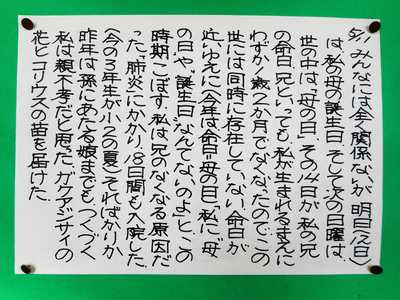 5/11 みんなには全く関係ないが、明日(12日)
は、私の母の誕生日。そして次の日曜は、
世の中は、「母の日」、その14日が、私の兄
の命日。兄といっても、私が生まれるまえに
わずか1歳2か月でなくなったので、この
世には同時に存在していない。命日が
近いゆえに(今年は命日=母の日)、「私に、"母
の日"や、"誕生日"なんてないのよ」と、この
時期こぼす。私は、兄のなくなる原因だ
った、"肺炎"にかかり、18日間も入院した。
(今の3年生が小2の夏)そればかりか
昨年は、孫にあたる娘までも。つくづく
私は親不孝だと思った。ガクアジサイの
花とコリウスの苗を届けた。